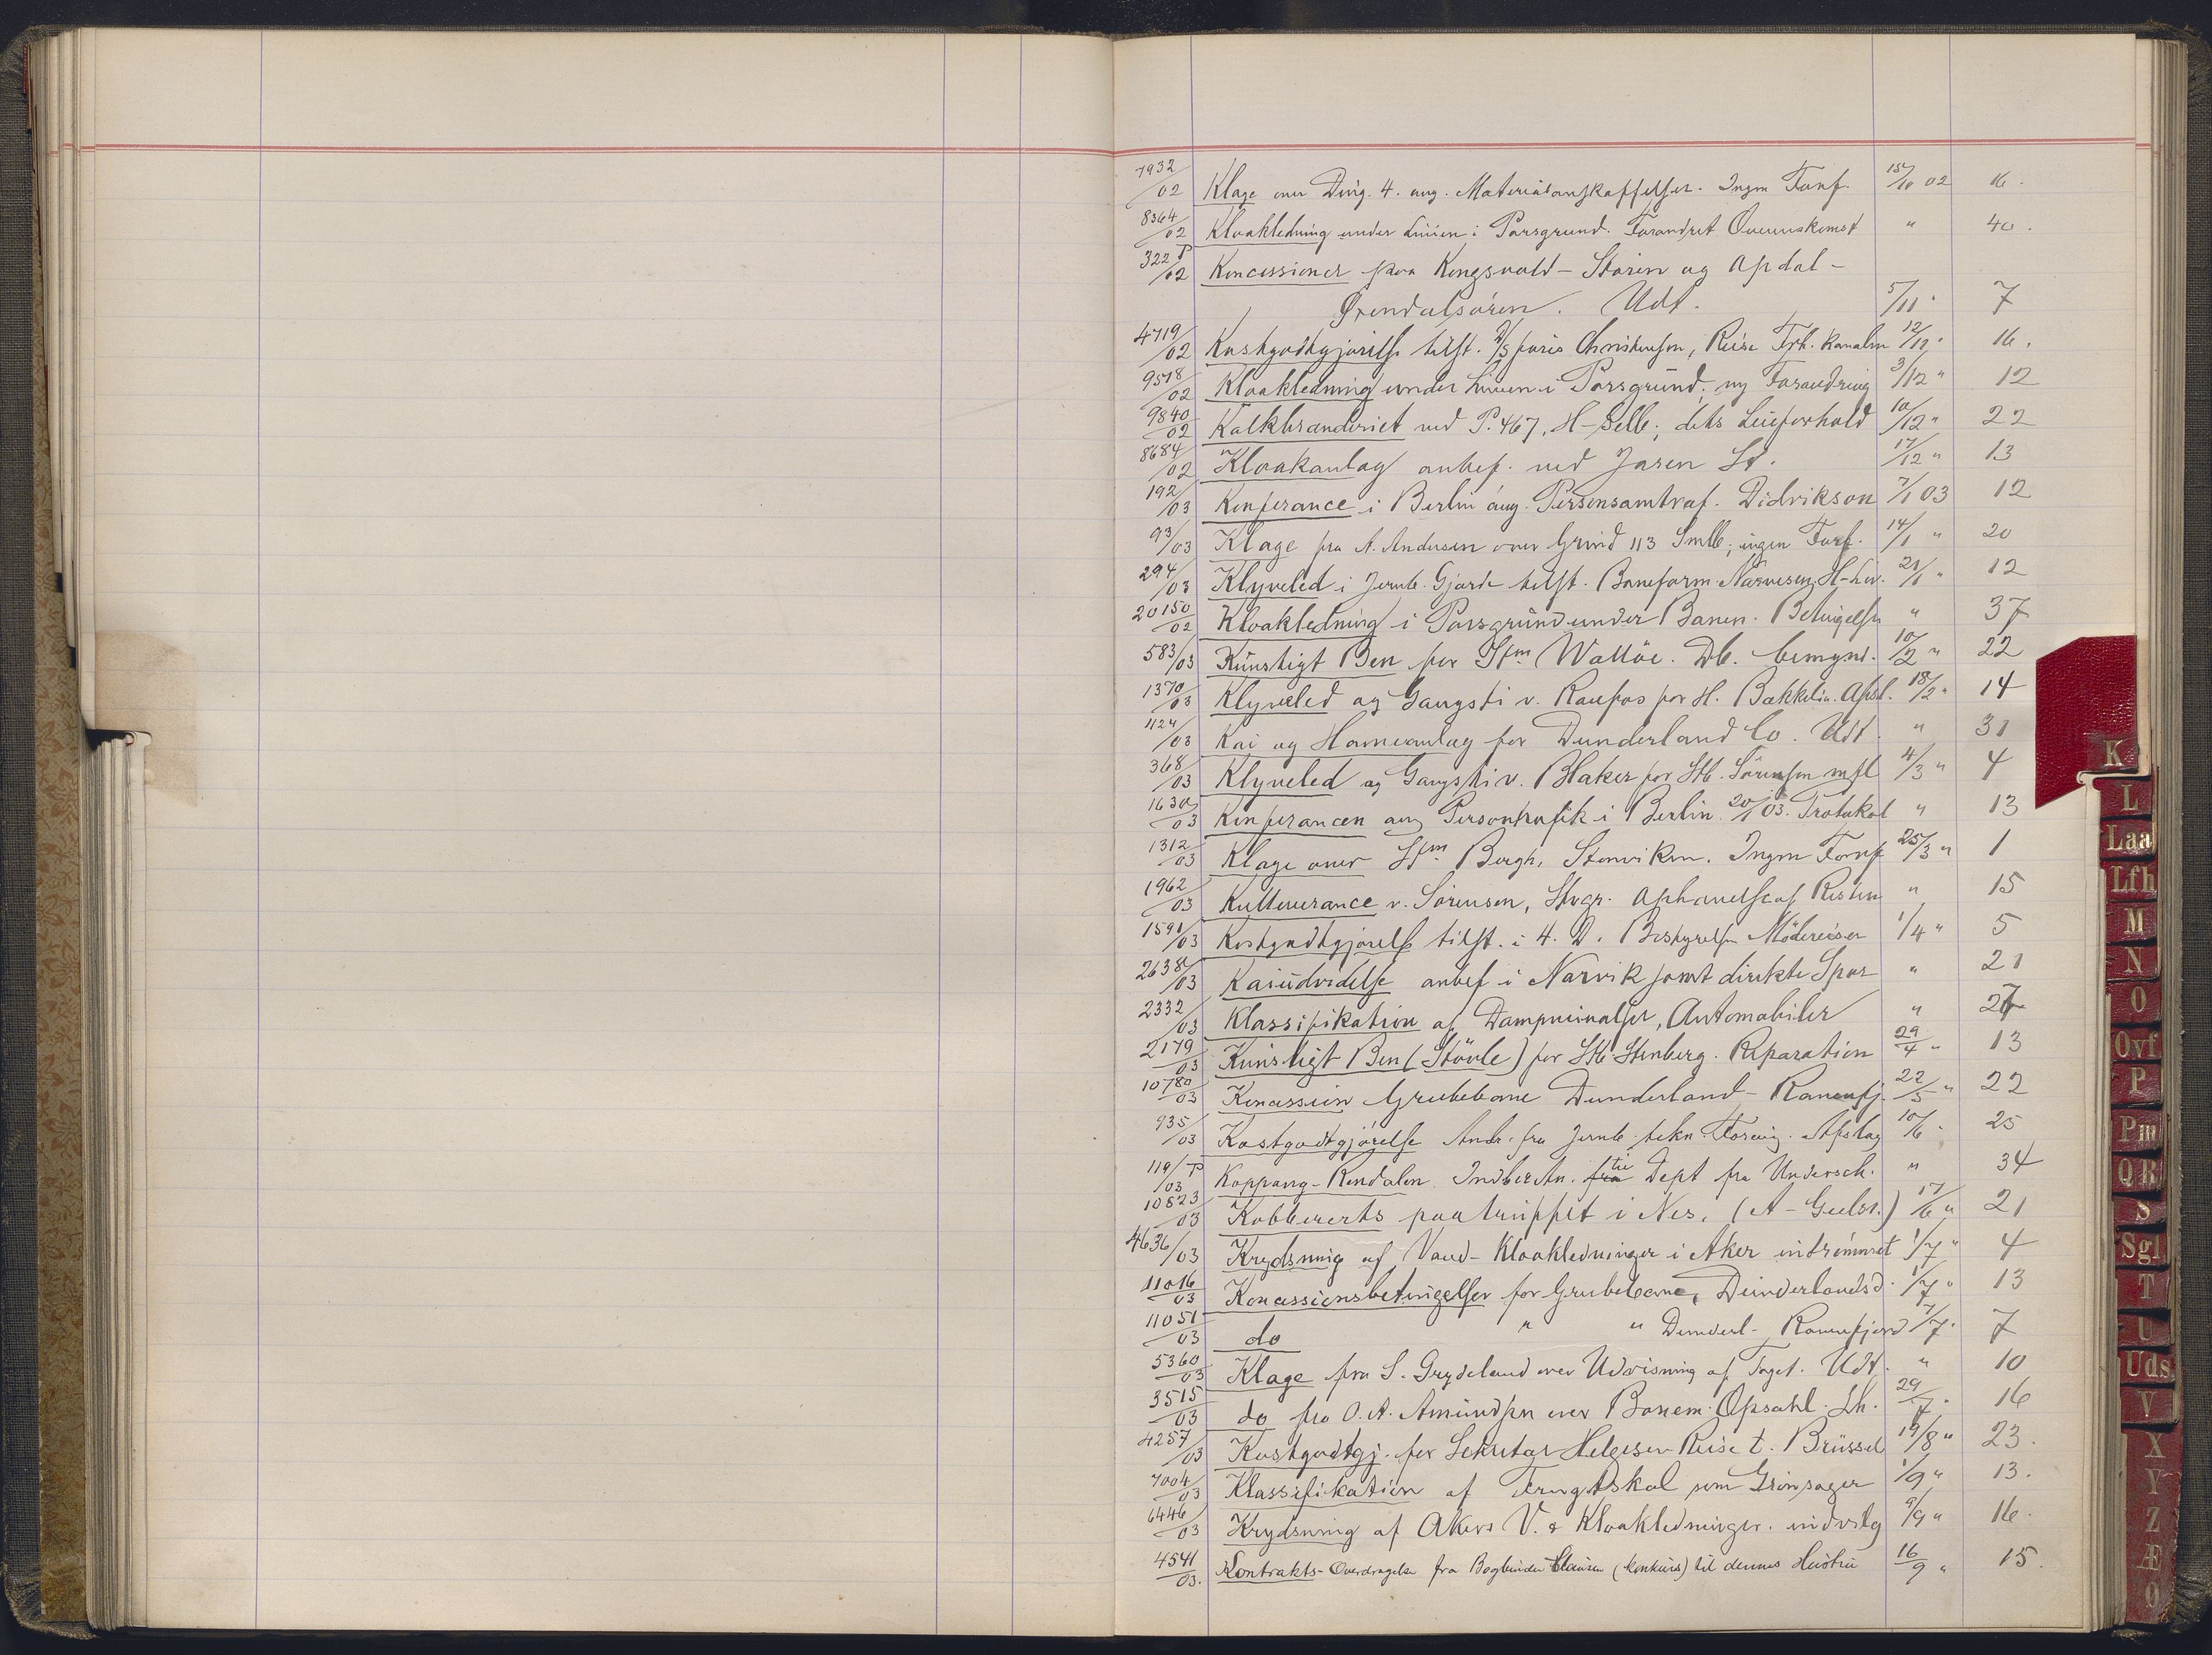 7932/02 Klage over Dvig. 4. ang. Materialanskaffelser. Ingen Forf. 15/10 02 16.
8364/02 Kloakledning under Linien i Porsgrund. Forandret Overenskomst " 40.
322 P/02 Koncessioner paa Kongsvold - Støren og Opdal -
Ørendalsøren. Udt. 5/11 " 7
4719/02 Kostgodtgjørelse tilst. Christensen, Reise Trh. Kanalen 12/12 " 16.
9518/02 Kloakledning under Linien i Porsgrund; ny Forandring 3/12 " 12
9840/02 Kalkbrænderiet ved P. 467, H-Selb; dets Leieforhold 10/12 " 22
8684/02 Kloakanlæg anbef. ved Jaren St. 17/12 " 13
192/03 Konferance i Berlin ang. Personsamtraf. Didrikson 7/1 03 12
93/03 Klage fra A. Andersen over Grind 113 Smlb; ingen Forf. 14/1 " 20
294/03 Klyveled i Jernb. Gjærde tilst. Baneform. Narvesen, H-Lin. 21/1 " 12
20150/02 Kloakledning i Porsgrund under Banen. Betingelser " 37
583/03 Kunstigt Ben for Stfm Walløe. Db. bemynd. 10/2 " 22
1370/03 Klyveled og Gangsti v. Raufos for H. Bækkelin. Afsl. 18/2 " 14
1124/03 Kai og Havneanlæg for Dunderland Co. Udt. " 31
368/03 Klyveled og Gangsti v. Blaker for Stb. Sørensen mfl 4/3 " 4
1630/03 Konferancen ang Persontrafik i Berlin 20/1 03. Protokol " 13
1312/03 Klage over Stfm Bergh, Stenviken. Ingen Forf 25/3 " 1
1962/03 Kulleverance v. Sørensen, Stvgr. Ophævelse af Resten " 15
1591/03 Kostgodtgjørelse tilst. i 4. D. Bestyrelsen Mødereiser 1/4 " 5
2638/03 Kaiudvidelse anbef i Narvik samt direkte Spor " 21
2332/03 Klassifikation af Dampvinalser, Automobiler " 27
2179/03 Kunstigt Ben (Støvle) for Stb. Stenberg. Reparation 29/4 " 13
10780/03 Koncession Grubebane Dunderland - Ranenfj. 22/5 " 22
935/03 Kostgodtgjørelse Andr. fra Jernb. tekn. Forening. Afslag 10/6 " 25
119/03 P Koppang - Rendalen Indberetn. fra til Dept fra Undersøk. " 34
10823/03 Kobbererts paatruffet i Nes. (A - Gulsr.) 17/6 " 21
4636/03 Krydsning af Vand- Kloakledninger i Aker indrømmet 1/7 " 4
11016/03 Koncessionsbetingelser for Grubebane, Dunderlandsd. 1/7 " 13
11051/03 do " " Dunderl - Ranenfjord 7/7 " 7
5360/03 Klage fra S. Grydeland over Udvisning af Toget. Udt. " 10
3515/03 do fra O. A. Amundsen over Banem. Opsahl. Lh. 29/7 " 16
4257/03 Kostgodtgj. for Sekretær Helgesen Reise t. Brüssel 19/8 " 23.
7004/03 Klassifikation af Frugtskal som Grønsager 1/9 " 13.
6446/03 Krydsning af Akers V. & Kloakledninger. indvilg 9/9 " 16.
4541/03. Kontrakts- Overdragelse fra Bogbinder Clausen (konkurs) til dennes Hustru 16/9 " 15.
K
L
Laa
Lfh
M
N
O
Ovf
P
Pm
QR
S
Sgl
T
U
Uds
V
X
Y
Z
Æ
Ø